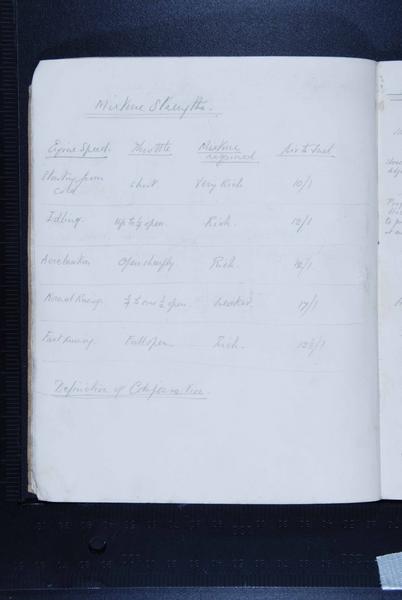 Mixture Strengths.
Engine Speed. Throttle Mixture required Air to Fuel
Starting from cold Shut. Very Rich 10/1
Idling. Up to ⅛ open. Rich. 12/1
Acceleration Open sharply Rich. 12/1
Normal Running open. Weaker. 17/1
Fast Running. Full open. Rich. 12½/1
Definition of